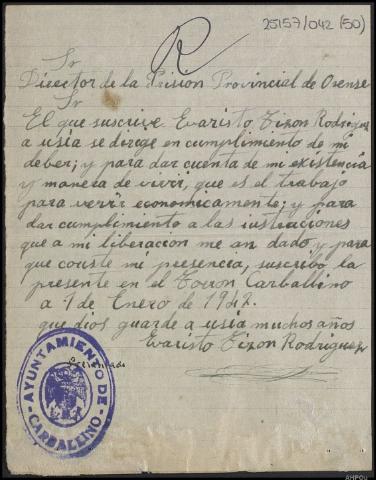 25157/042 (50)
R
Sr
Director de la Prision Provincial de Orense
Sr
El que suscrive Evaristo Tizon Rodriguez
a usia se dirige en cumplimiento de mi
deber; y para dar cuenta de mi existencia
y manera de vivir, que es el trabajo
para vevir economicamente; y para
dar cumplimiento a las instruciones
que a mi liberacion me an dado, y para
que couste mi presencia, suscribo la
presente en el Carballino
a 1 de Enero de 1942.
que dios guarde a usia muchos años
Evaristo Tizon Rodriguez
Presentado
AYUNTAMIENTO DE
CARBALLINO
AHPOu